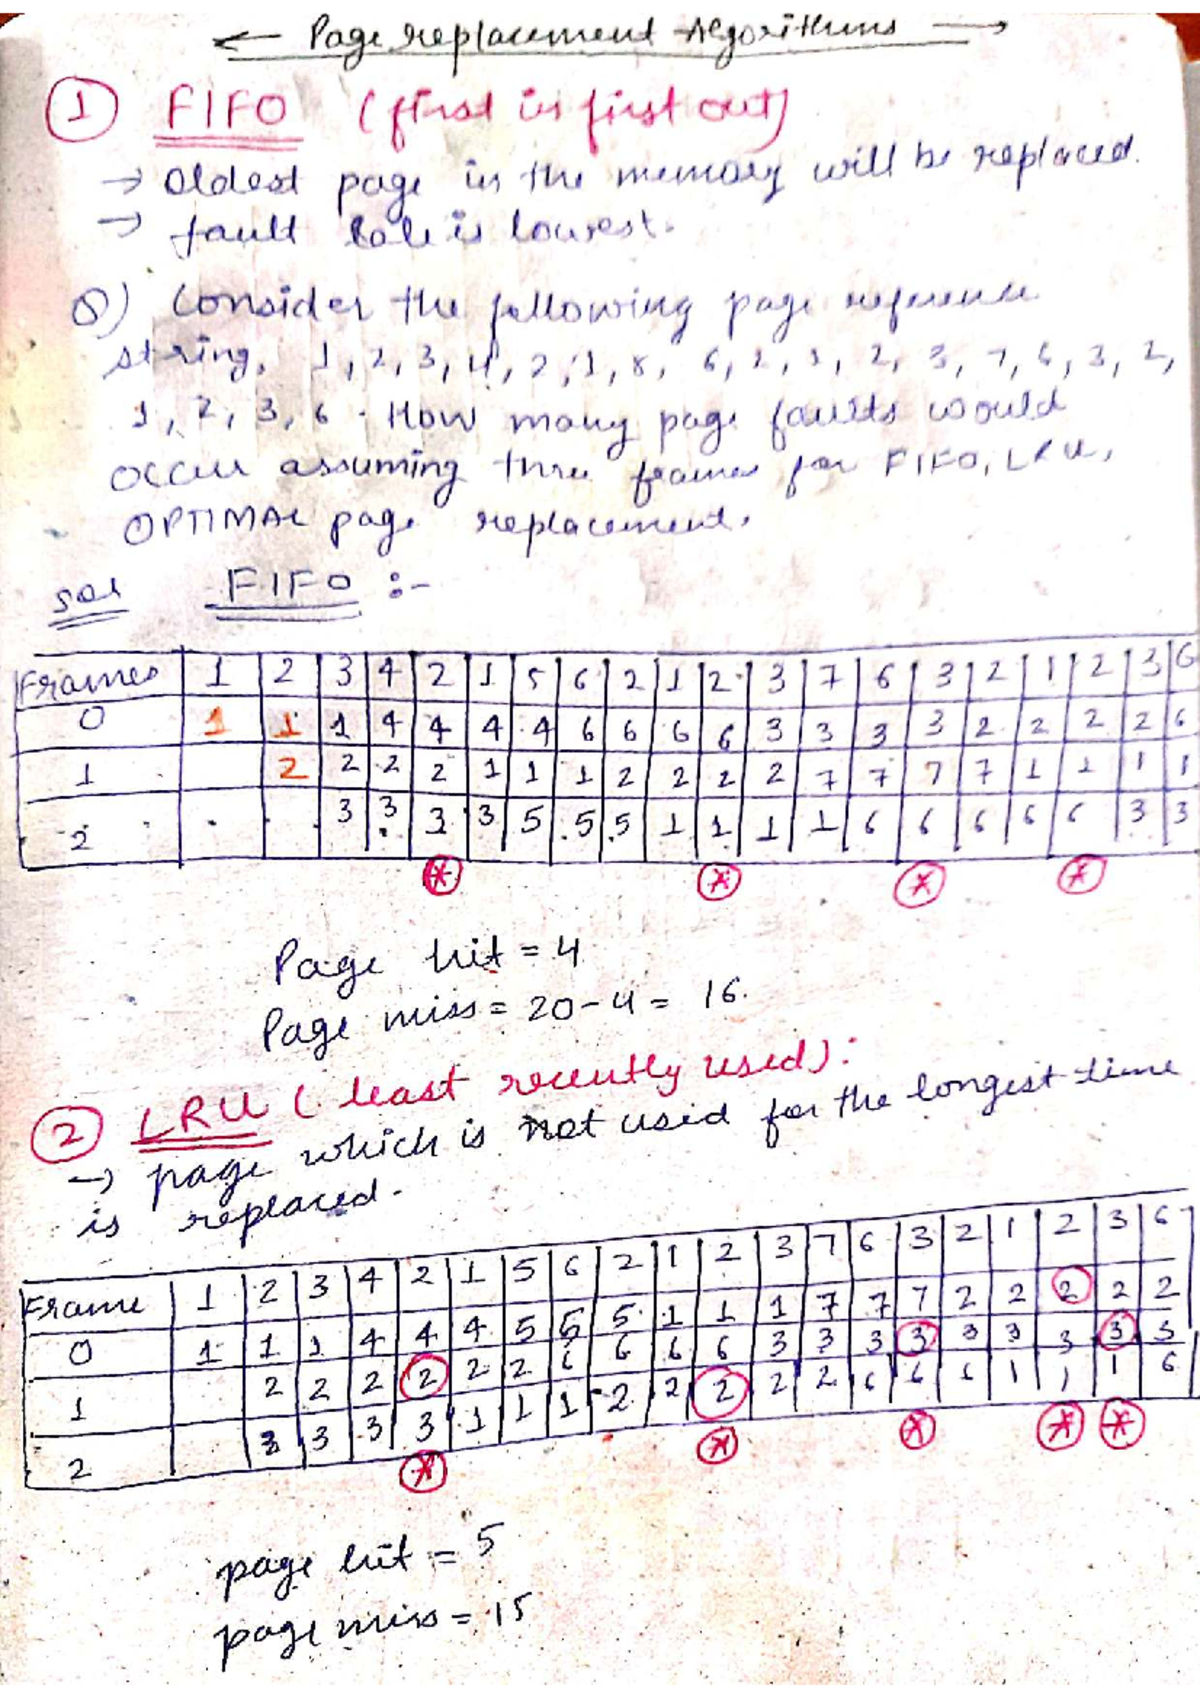 ← Page replacement Algorithms →
① FIFO (first in first out)
→ Oldest page in the memory will be replaced.
→ fault rate is lowest.
Q) Consider the following page reference
string, 1, 2, 3, 4, 2, 1, 5, 6, 2, 1, 2, 3, 7, 6, 3, 2,
1, 2, 3, 6. How many page faults would
occur assuming three frames for FIFO, LRU,
OPTIMAL page replacement.
Sol FIFO :-
Frames 1 2 3 4 2 1 5 6 2 1 2 3 7 6 3 2 1 2 3 6
0 1 1 1 4 4 4 4 6 6 6 6 3 3 3 3 2 2 2 2 6
1 2 2 2 2 1 1 1 2 2 2 2 7 7 7 7 1 1 1 1
2 3 3 3 3 5 5 5 1 1 1 1 6 6 6 6 6 3 3
* * * *
Page hit = 4
Page miss = 20-4 = 16.
② LRU (least recently used):
→ page which is not used for the longest time
is replaced.
Frame 1 2 3 4 2 1 5 6 2 1 2 3 7 6 3 2 1 2 3 6
0 1 1 1 4 4 4 5 5 5 1 1 1 7 7 7 2 2 2 2 2
1 2 2 2 2 2 2 6 6 6 6 3 3 3 3 3 3 3 3 3
2 3 3 3 3 1 1 1 2 2 2 2 2 6 6 6 1 1 1 6
* * * * *
page hit = 5
page miss = 15